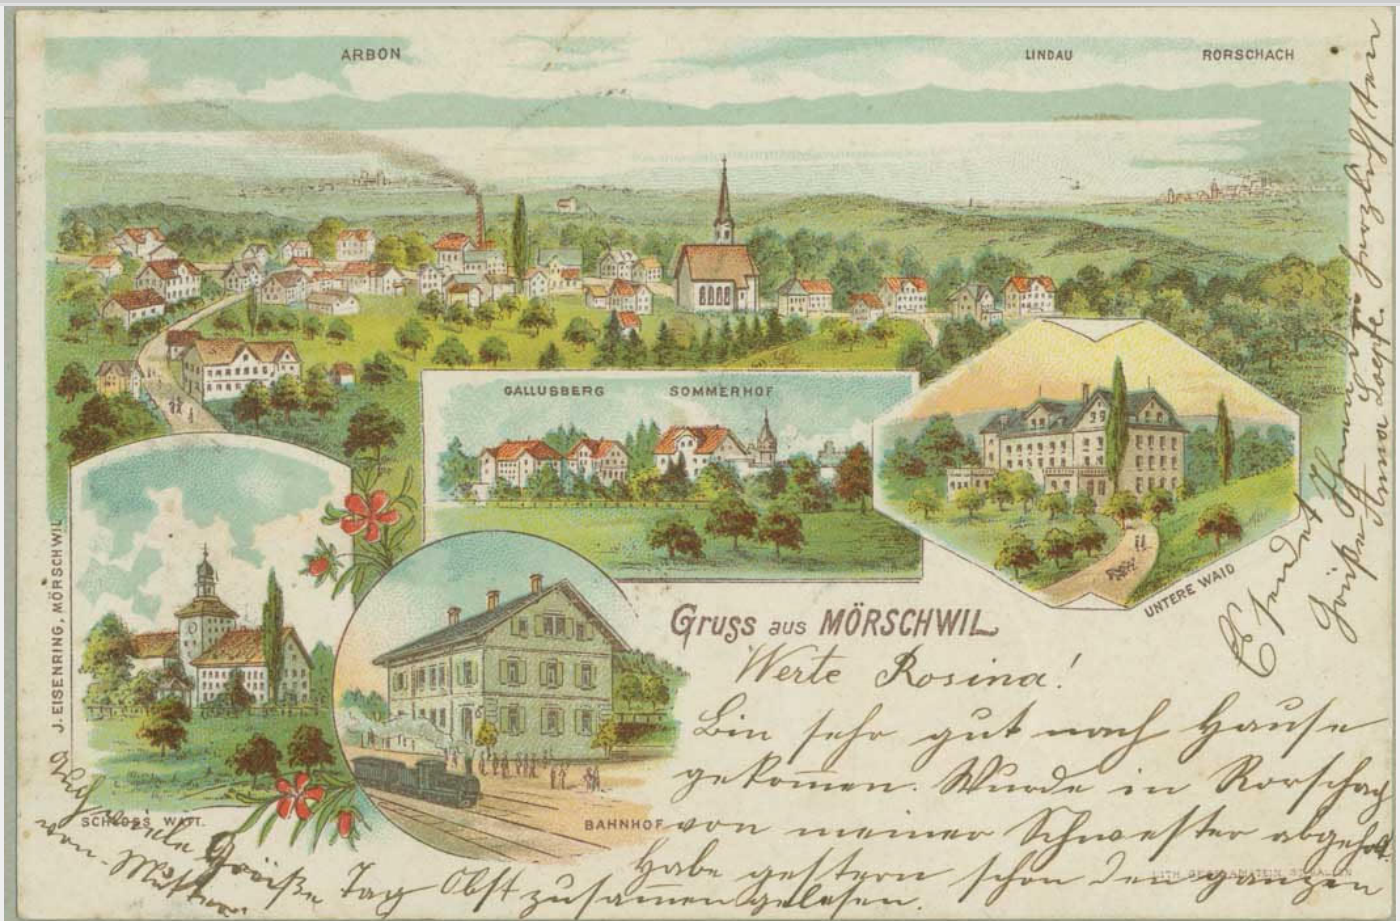 ARBON
LINDAU
RORSCHACH
GALLUSBERG
SOMMERHOF
UNTERE WAID
J. EISENRING, MÖRSCHWIL
SCHLOSS WATT.
BAHNHOF
Gruss aus MÖRSCHWIL
Werte Rosina!
Bin sehr gut nach Hause
gekommen. Wurde in Rorschach
von meiner Schwester abgeholt.
Habe gestern schon den ganzen
Tag Obst zusammengelesen.
Es sendet Ihnen die herzlichsten
Grüße Anna Loepfe.
Auch viele Grüße
von Mutter.